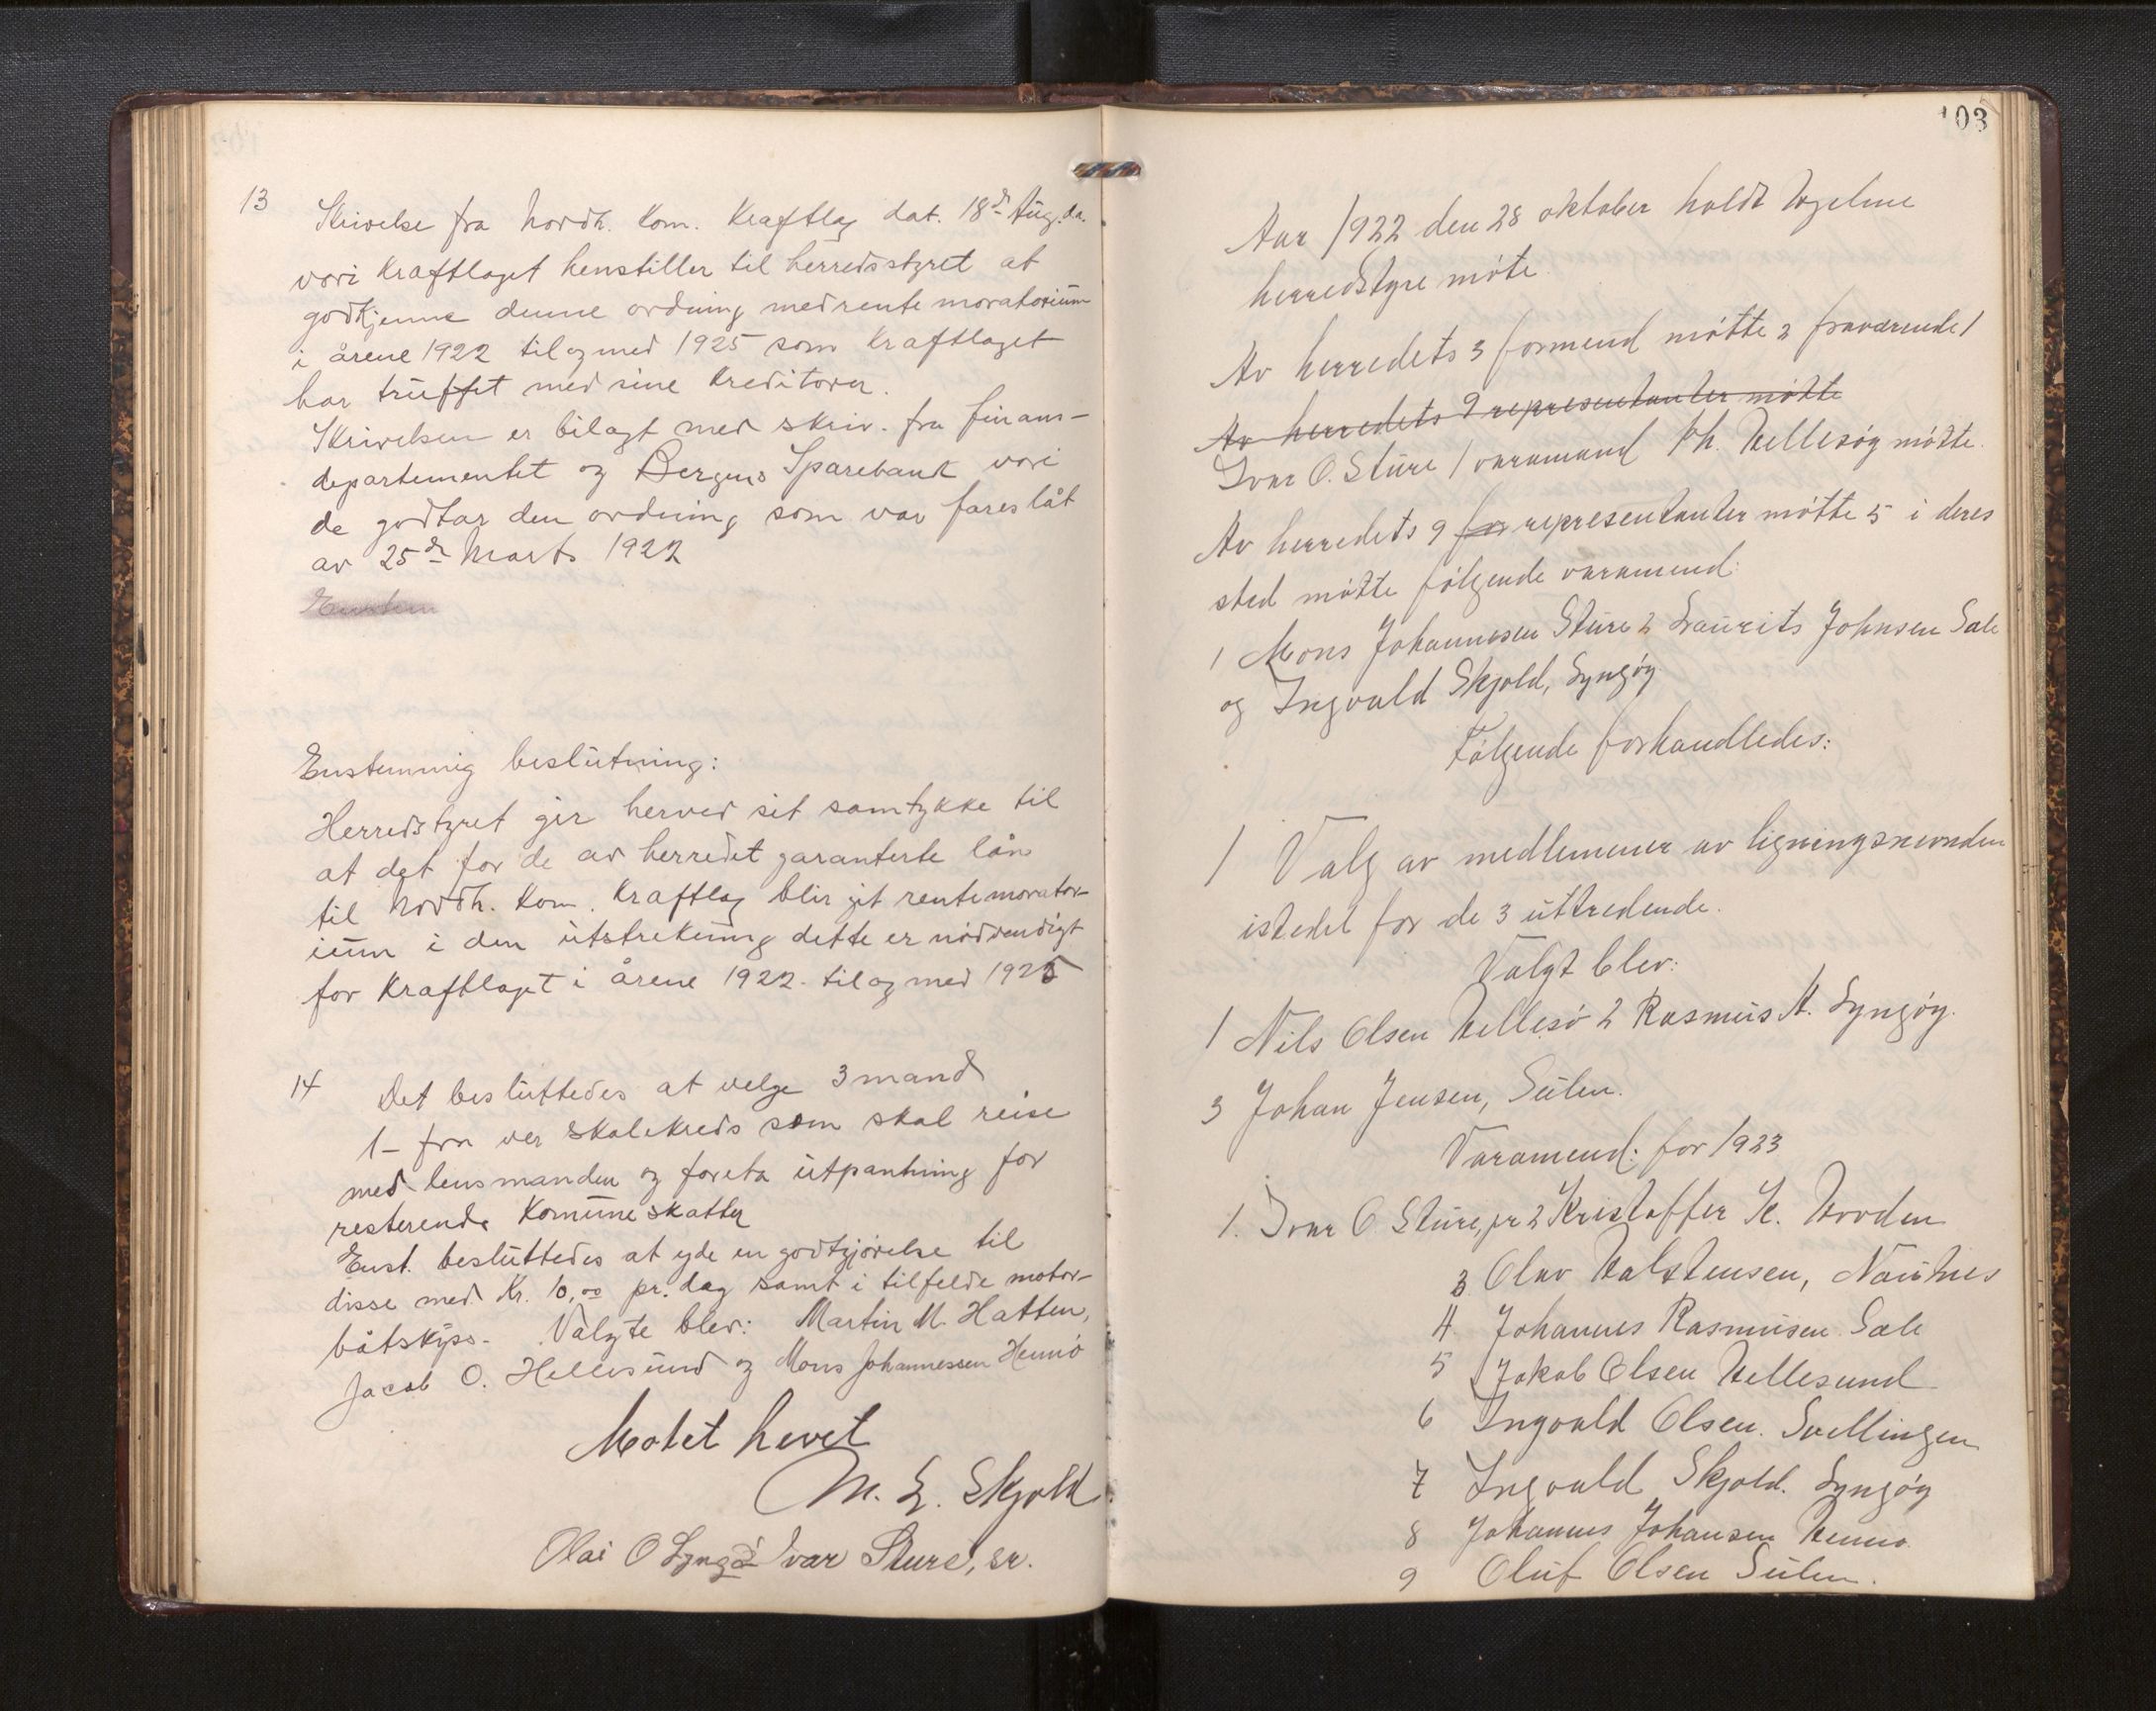 13 Skrivelse fra Nordh. Kom. Kraftlag dat. 18de Aug. da.
vori Kraftlaget henstiller til herredsstyret at
godkjenne denne ordning med rente moratorium
i årene 1922 til og med 1925 som Kraftlaget
har trüffet med sine Kreditorer.
Skrivelsen er bilagt med skriv. fra finans-
departementet og Bergens Sparebank vori
de godtar den ordning som var foreslåt
av 25de Marts 1922
Enstemmig beslütning:
Herredstyret gir herved sit samtykke til
at det for de av herredet garanterte lån
til Nordh. Kom. Kraftlag blir git rentemorator-
iüm i den ütstrekning dette er nödvendigt
for Kraftlaget i årene 1922. til og med 1925
14 Det beslüttedes at velge 3 mand
1 - fra ver skolekreds som skal reise
med lensmanden og foreta ütpantning for
resterende Komüneskatter
Enst. beslüttedes at yde en godtgjörelse til
disse med Kr. 10,00 pr. dag samt i tilfelde motor-
båtskyss. Valgte blev: Martin M. Hatten,
Jacob O. Hellesünd og Mons Johannessen Hennö
Motet hevet
M. L. Skjold
Olai O Lyngö Ivar Sture, sr.
103
Aar 1922 den 28 oktober holdt Hjelme
herredstyre möte
Av herredets 3 formend mötte 2 fraværende 1
Av herredets 9 representanter mötte
Ivar O. Stüre 1 varamand Kh. Hellesöy mötte.
Av herredets 9 for representanter mötte 5 i deres
sted mötte fölgende varamend:
1 Mons Johannesen Stüre 2 Laürits Johnsen Sale
og Ingvald Skjold, Lyngöy
Fölgende forhandledes:
1 Valg av medlemmer av ligningsnevnden
istedet for de 3 üttredende.
Valgt blev:
1 Nils Olsen Hellesö 2 Rasmüs K. Lyngöy.
3 Johan Jensen, Sülen.
Varamend: for 1923
1. Ivar O Stüre, jr 2 Kristoffer K. Horden
3 Olav Halstensen, Naütnes
4 Johannes Rasmüsen Sale
5 Jakob Olsen Hellesund
6 Ingvald Olsen. Svellingen
7 Ingvald Skjold. Lyngöy
8 Johannes Johansen Henno.
9 Olüf Olsen Sülen.